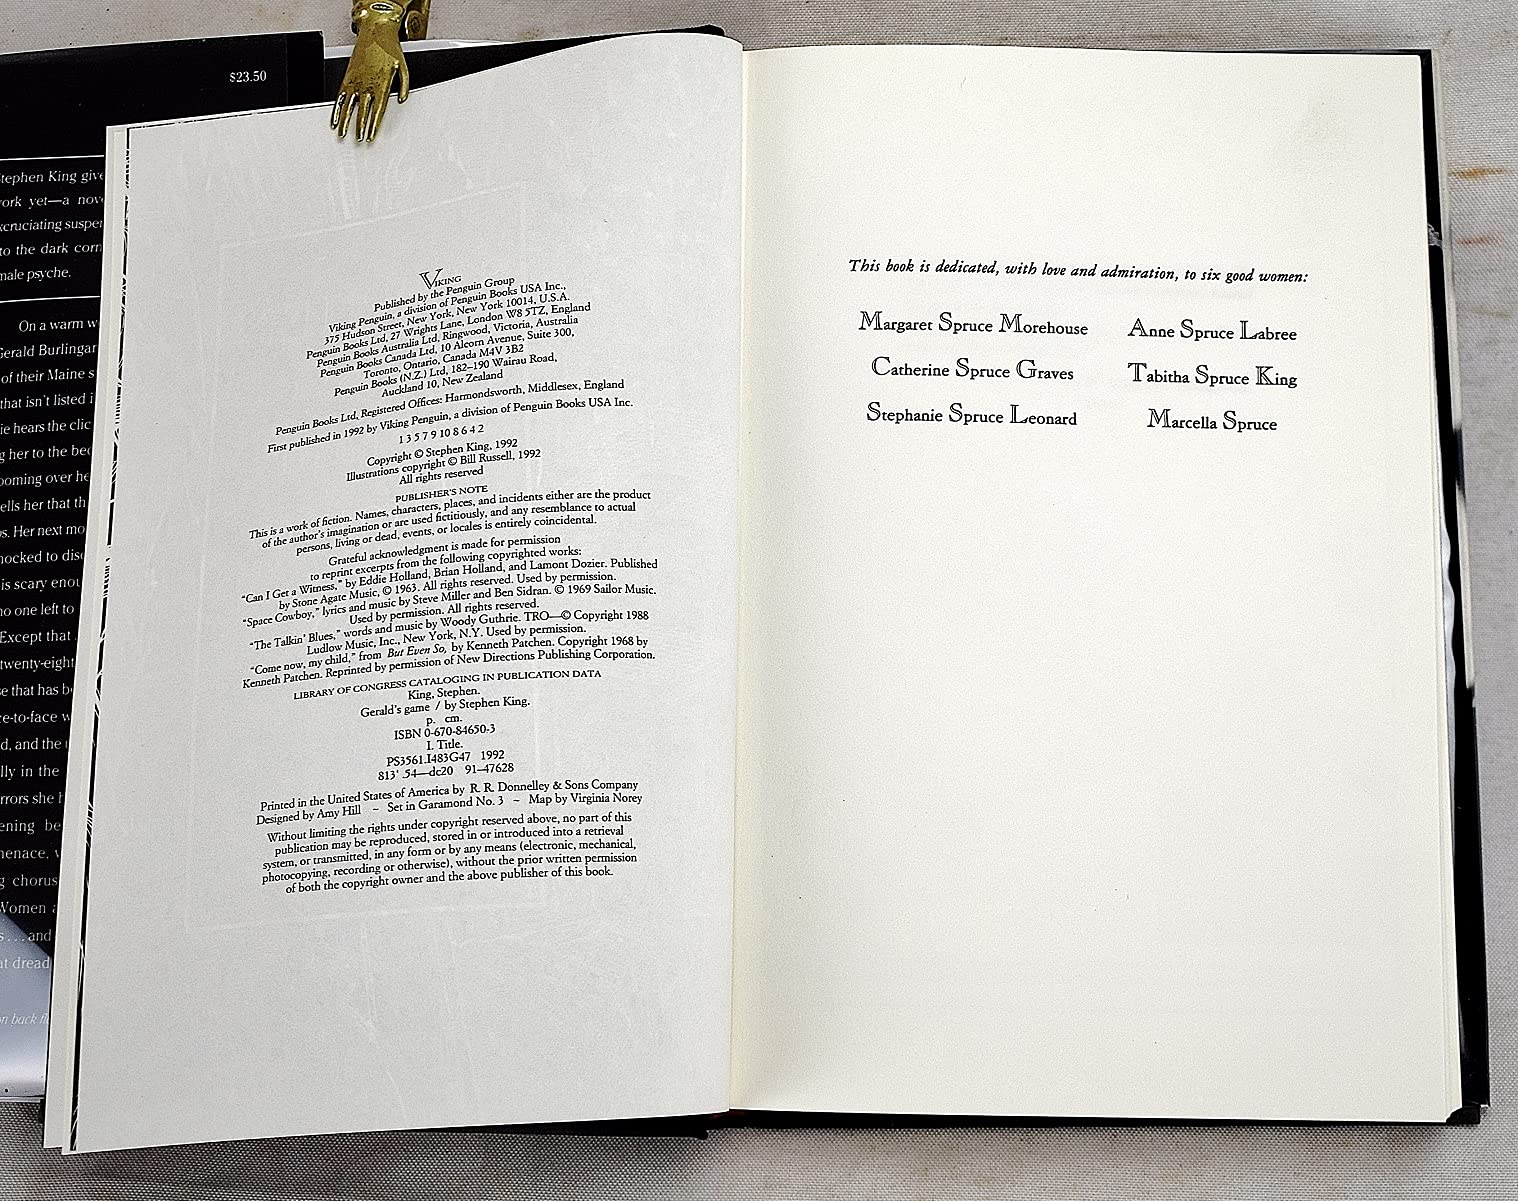 $23.50
Stephen King give
work yet—a nov
excruciating suspe
to the dark corn
male psyche.
On a warm w
Gerald Burlingar
of their Maine s
that isn't listed i
ie hears the clic
g her to the bed
ooming over he
ells her that th
s. Her next mo
nocked to disc
is scary enou
no one left to
Except that
twenty-eight
se that has b
ce-to-face w
d, and the
lly in the
rrors she h
ening be
menace, w
g chorus
Women a
s...and
at dread
on back fl
VIKING
Published by the Penguin Group
Viking Penguin, a division of Penguin Books USA Inc.,
375 Hudson Street, New York, New York 10014, U.S.A.
Penguin Books Ltd, 27 Wrights Lane, London W8 5TZ, England
Penguin Books Australia Ltd, Ringwood, Victoria, Australia
Penguin Books Canada Ltd, 10 Alcorn Avenue, Suite 300,
Toronto, Ontario, Canada M4V 3B2
Penguin Books (N.Z.) Ltd, 182–190 Wairau Road,
Auckland 10, New Zealand
Penguin Books Ltd, Registered Offices: Harmondsworth, Middlesex, England
First published in 1992 by Viking Penguin, a division of Penguin Books USA Inc.
1 3 5 7 9 10 8 6 4 2
Copyright © Stephen King, 1992
Illustrations copyright © Bill Russell, 1992
All rights reserved
PUBLISHER'S NOTE
This is a work of fiction. Names, characters, places, and incidents either are the product
of the author's imagination or are used fictitiously, and any resemblance to actual
persons, living or dead, events, or locales is entirely coincidental.
Grateful acknowledgment is made for permission
to reprint excerpts from the following copyrighted works:
"Can I Get a Witness," by Eddie Holland, Brian Holland, and Lamont Dozier. Published
by Stone Agate Music, © 1963. All rights reserved. Used by permission.
"Space Cowboy," lyrics and music by Steve Miller and Ben Sidran. © 1969 Sailor Music.
Used by permission. All rights reserved.
"The Talkin' Blues," words and music by Woody Guthrie. TRO—© Copyright 1988
Ludlow Music, Inc., New York, N.Y. Used by permission.
"Come now, my child," from But Even So, by Kenneth Patchen. Copyright 1968 by
Kenneth Patchen. Reprinted by permission of New Directions Publishing Corporation.
LIBRARY OF CONGRESS CATALOGING IN PUBLICATION DATA
King, Stephen.
Gerald's game / by Stephen King.
p. cm.
ISBN 0-670-84650-3
I. Title.
PS3561.I483G47 1992
813'.54—dc20 91-47628
Printed in the United States of America by R. R. Donnelley & Sons Company
Designed by Amy Hill ~ Set in Garamond No. 3 ~ Map by Virginia Norey
Without limiting the rights under copyright reserved above, no part of this
publication may be reproduced, stored in or introduced into a retrieval
system, or transmitted, in any form or by any means (electronic, mechanical,
photocopying, recording or otherwise), without the prior written permission
of both the copyright owner and the above publisher of this book.
This book is dedicated, with love and admiration, to six good women:
Margaret Spruce Morehouse Anne Spruce Labree
Catherine Spruce Graves Tabitha Spruce King
Stephanie Spruce Leonard Marcella Spruce